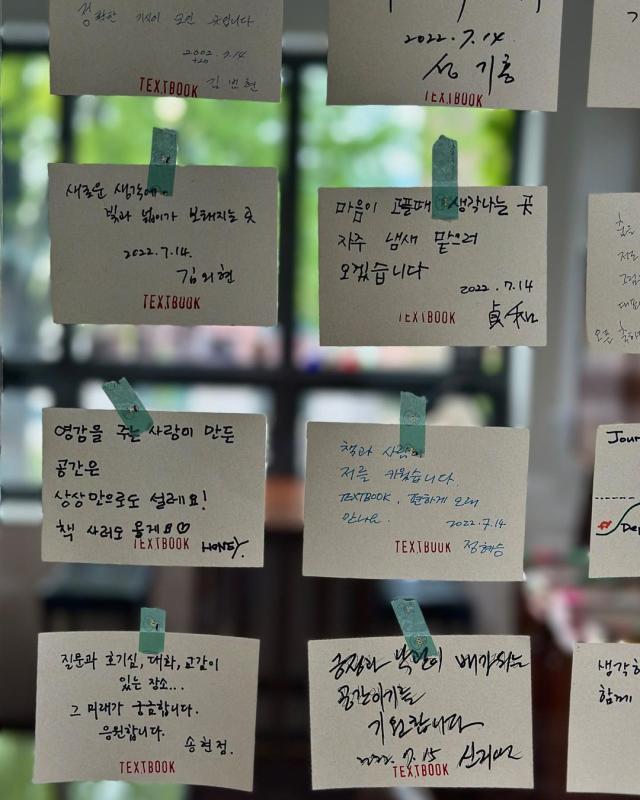 기식이 모인 곳입니다.
7.14
TEXTBOOK
김번현
2022.7.14
성기홍
TEXTBOOK
새로운 생각에
빛과 넓이가 보태지는 곳
2022.7.14.
김의현
TEXTBOOK
마음이 고플때 생각나는 곳
자주 냄새 맡으러
오겠습니다
2022.7.14
貞和
TEXTBOOK
영감을 주는 사람이 만든
공간은
상상만으로도 설레요!
책 사러도 올게요♡
HONEY.
TEXTBOOK
책과 사람이
저를 키웠습니다.
TEXTBOOK, 편하게 오래
만나요.
2022.7.14
TEXTBOOK
정혜승
Jour
질문과 호기심, 대화, 교감이
있는 장소...
그 미래가 궁금합니다.
응원합니다.
송현정.
TEXTBOOK
긍정과 낙관이 배가되는
공간이기를
기원합니다
2022.7.15
TEXTBOOK
생각하
함께